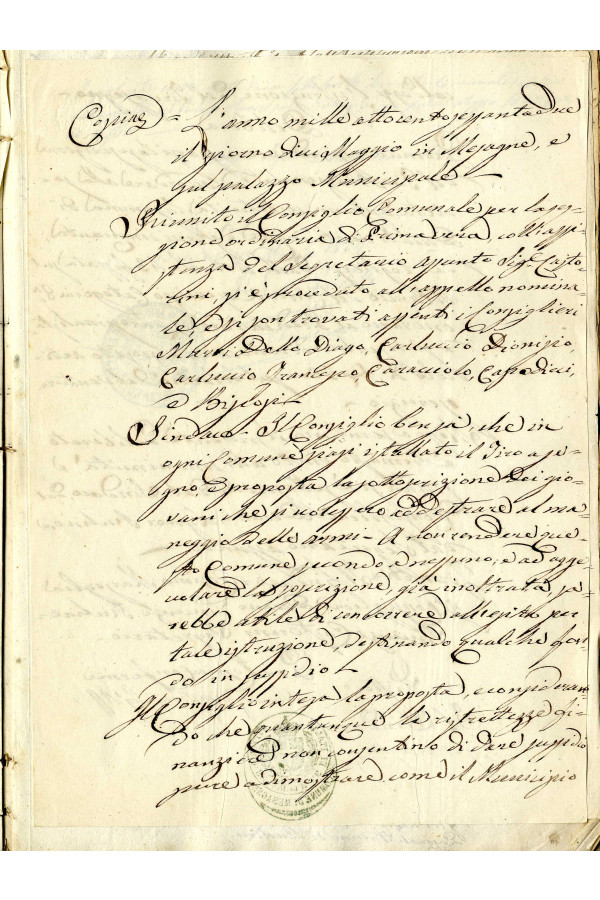 Copia = L'anno mille ottocentosessantadue
il giorno dieci Maggio in Mesagne, e
sul palazzo Municipale —
Riunito il Consiglio Comunale per la ses-
sione ordinaria di Primavera, coll'assi-
stenza del Segretario assunto Sig.r Casto-
rini, si è proceduto all'appello nomina-
le e si son trovati assenti i Consiglieri
Dello Diago, Carluccio Dionisio,
Carluccio Francesco, Caracciolo, Capodieci,
e
Sindaco — Il Consiglio ben sà, che in
ogni Comune siasi istallato il Tiro a se-
gno, e proposta la sottoscrizione dei gio-
vani che si volessero addestrare al ma-
neggio delle armi — A non rendere que-
sto Comune secondo a nessuno, e ad age-
volare la soscrizione, già inoltrata, sa-
rebbe utile di concorrere per
tale istruzione, destinando qualche fon-
do in sussidio —
Il Consiglio intesa la proposta, e consideran-
do che quantunque le ristrettezze fi-
nanziere non consentino di dare sussidio
pure a dimostrare come il Municipio